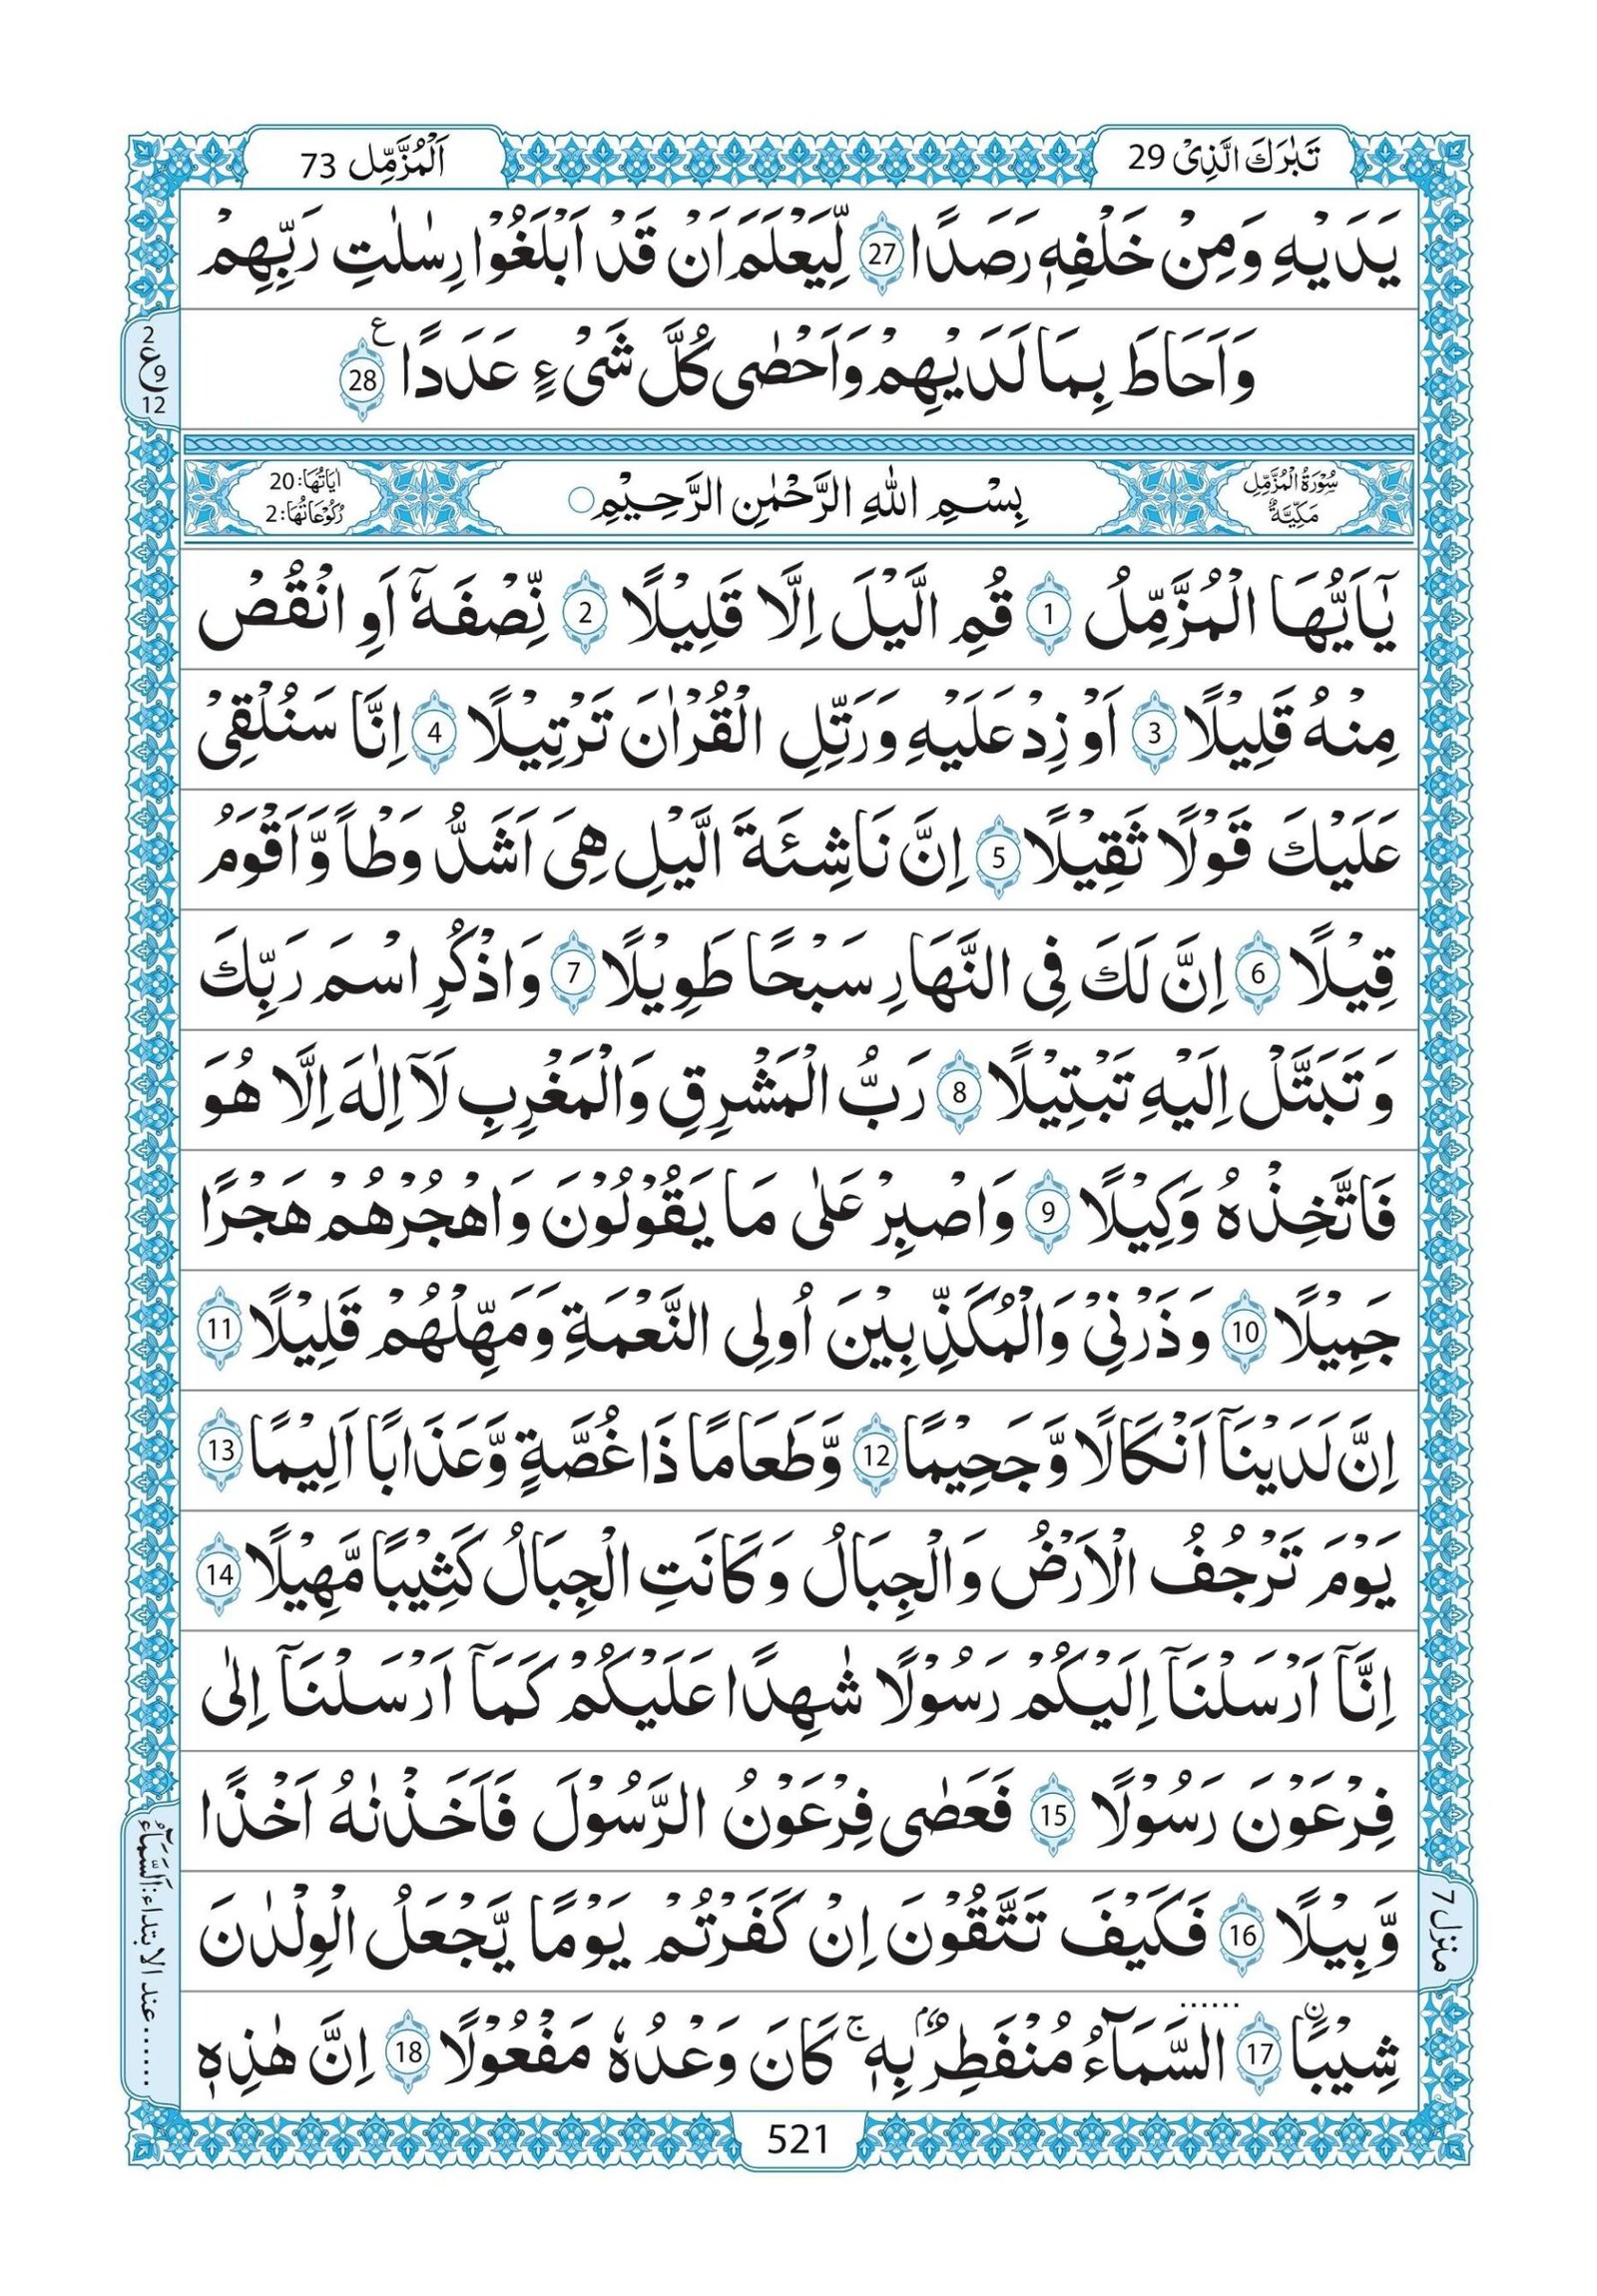 تَبٰرَكَ الَّذِیْ 29
اَلْمُزَّمِّل 73
یَدَیْهِ وَمِنْ خَلْفِهٖ رَصَدًا 27 لِّیَعْلَمَ اَنْ قَدْ اَبْلَغُوْا رِسٰلٰتِ رَبِّهِمْ
وَاَحَاطَ بِمَا لَدَیْهِمْ وَاَحْصٰی كُلَّ شَیْءٍ عَدَدًا ع 28
2
ع 9
12
سُوْرَةُ الْمُزَّمِّلِ مَكِّیَّةٌ
بِسْمِ اللهِ الرَّحْمٰنِ الرَّحِیْمِ
اٰیَاتُهَا: 20
رُكُوْعَاتُهَا: 2
یٰۤاَیُّهَا الْمُزَّمِّلُ 1 قُمِ الَّیْلَ اِلَّا قَلِیْلًا 2 نِّصْفَهٗۤ اَوِ انْقُصْ
مِنْهُ قَلِیْلًا 3 اَوْ زِدْ عَلَیْهِ وَرَتِّلِ الْقُرْاٰنَ تَرْتِیْلًا 4 اِنَّا سَنُلْقِیْ
عَلَیْكَ قَوْلًا ثَقِیْلًا 5 اِنَّ نَاشِئَةَ الَّیْلِ هِیَ اَشَدُّ وَطْاً وَّاَقْوَمُ
قِیْلًا 6 اِنَّ لَكَ فِی النَّهَارِ سَبْحًا طَوِیْلًا 7 وَاذْكُرِ اسْمَ رَبِّكَ
وَتَبَتَّلْ اِلَیْهِ تَبْتِیْلًا 8 رَبُّ الْمَشْرِقِ وَالْمَغْرِبِ لَاۤ اِلٰهَ اِلَّا هُوَ
فَاتَّخِذْهُ وَكِیْلًا 9 وَاصْبِرْ عَلٰی مَا یَقُوْلُوْنَ وَاهْجُرْهُمْ هَجْرًا
جَمِیْلًا 10 وَذَرْنِیْ وَالْمُكَذِّبِیْنَ اُولِی النَّعْمَةِ وَمَهِّلْهُمْ قَلِیْلًا 11
اِنَّ لَدَیْنَاۤ اَنْكَالًا وَّجَحِیْمًا 12 وَّطَعَامًا ذَا غُصَّةٍ وَّعَذَابًا اَلِیْمًا 13
یَوْمَ تَرْجُفُ الْاَرْضُ وَالْجِبَالُ وَكَانَتِ الْجِبَالُ كَثِیْبًا مَّهِیْلًا 14
اِنَّاۤ اَرْسَلْنَاۤ اِلَیْكُمْ رَسُوْلًا شٰهِدًا عَلَیْكُمْ كَمَاۤ اَرْسَلْنَاۤ اِلٰی
فِرْعَوْنَ رَسُوْلًا 15 فَعَصٰی فِرْعَوْنُ الرَّسُوْلَ فَاَخَذْنٰهُ اَخْذًا
وَّبِیْلًا 16 فَكَیْفَ تَتَّقُوْنَ اِنْ كَفَرْتُمْ یَوْمًا یَّجْعَلُ الْوِلْدٰنَ
شِیْبًا ن 17 السَّمَآءُ مُنْفَطِرٌۢ بِهٖ ج كَانَ وَعْدُهٗ مَفْعُوْلًا 18 اِنَّ هٰذِهٖ
منزل 7
...... عند الابتداء: اَلسَّمَآءُ
521